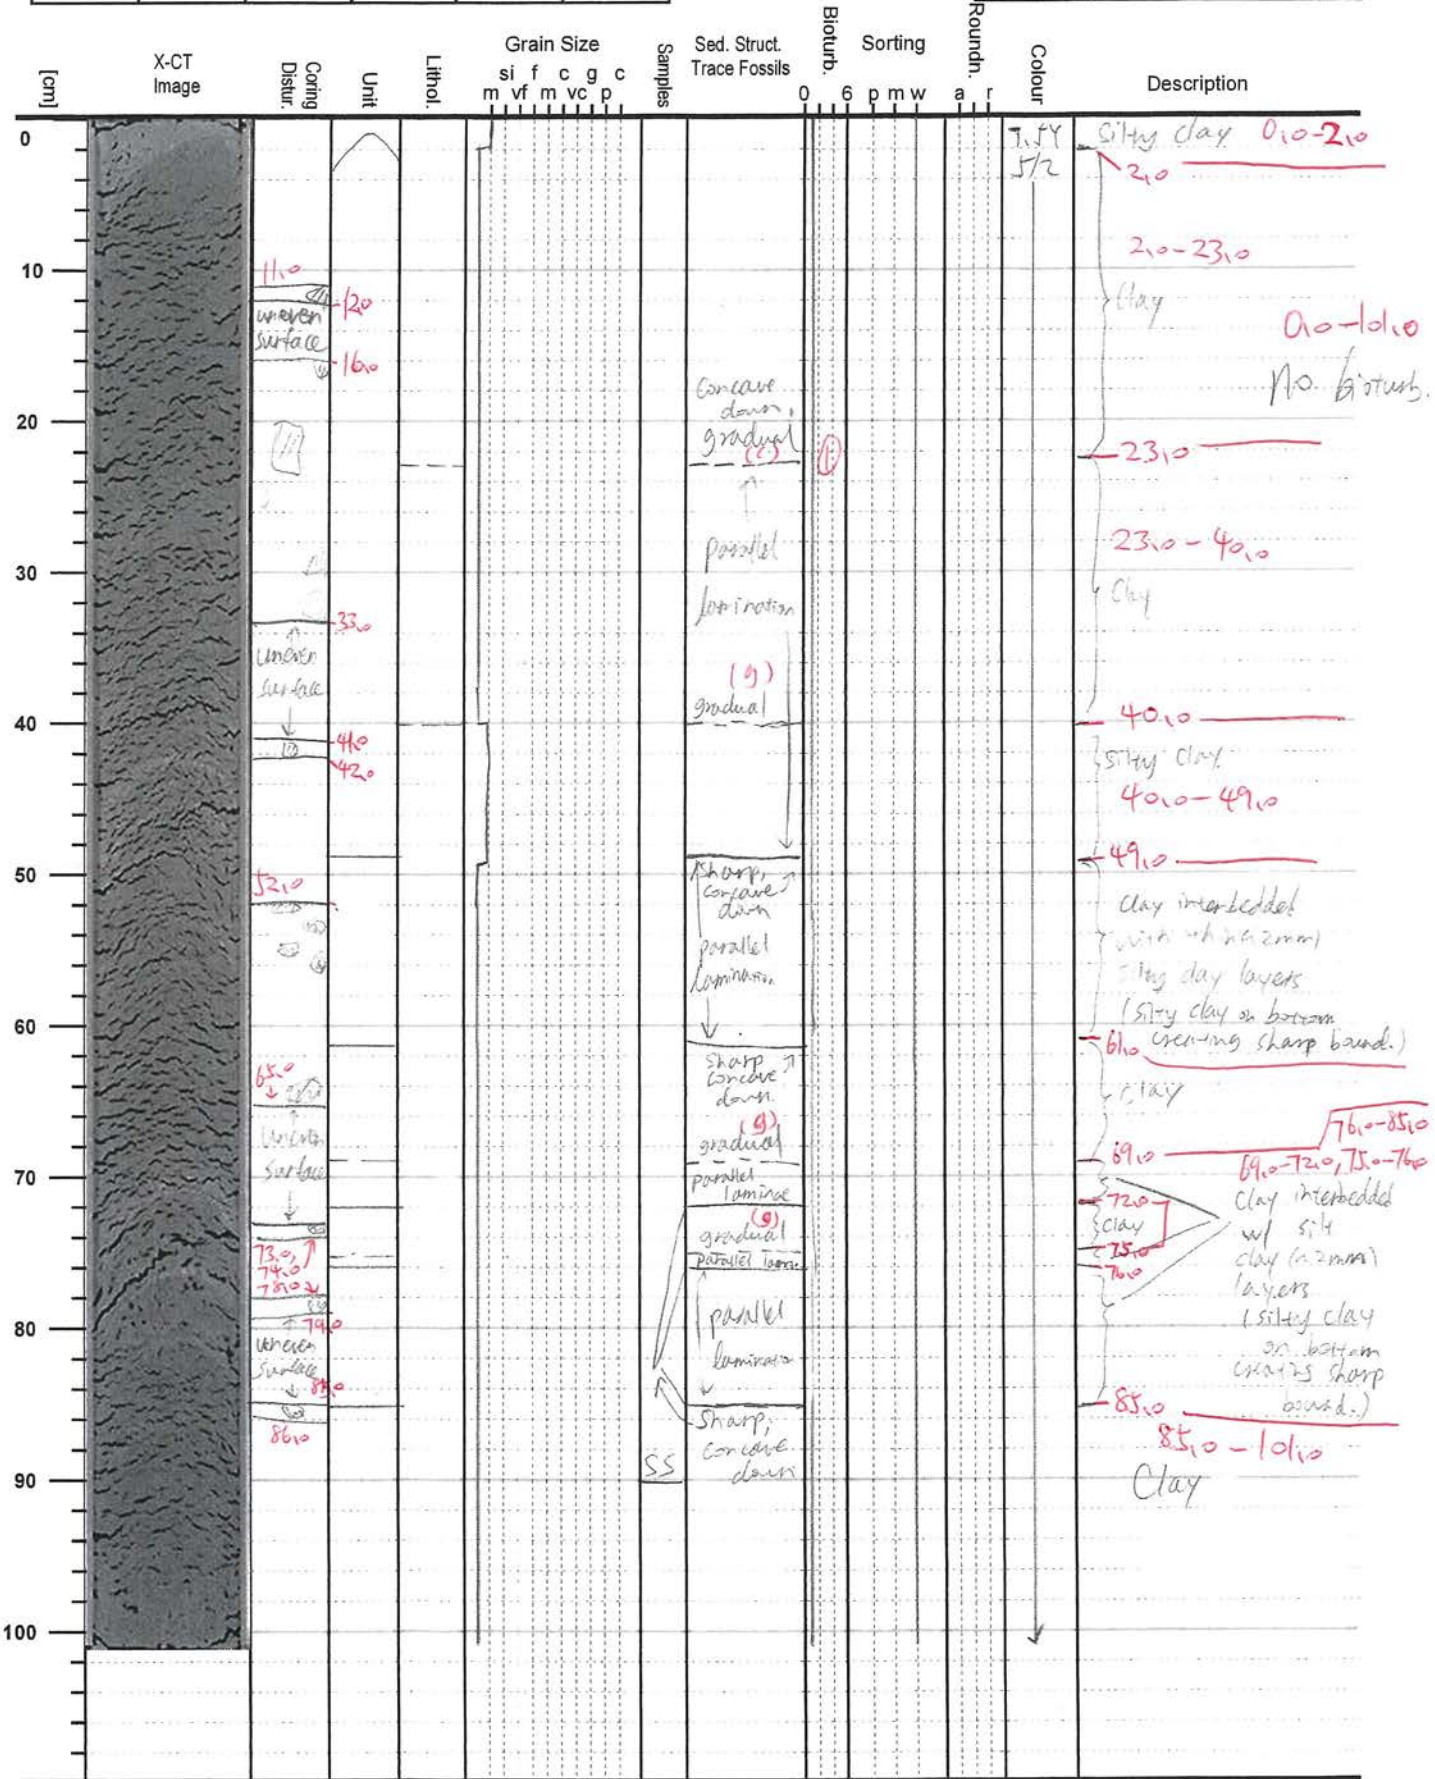 [cm]
X-CT
Image
Coring
Distur.
Unit
Lithol.
Grain Size
si f c g c
m vf m vc p
Samples
Sed. Struct.
Trace Fossils
Bioturb.
0 6
Sorting
p m w
Roundn.
a r
Colour
Description
0
10
20
30
40
50
60
70
80
90
100
11.0
12.0
uneven
surface
16.0
33.0
uneven
surface
41.0
42.0
52.0
65.0
uneven
surface
73.0,
74.0
78.0
79.0
uneven
surface
85.0
86.0
SS
concave
down,
gradual
parallel
lamination
(g)
gradual
sharp,
concave
down
parallel
lamination
sharp
concave
down.
(g)
gradual
parallel
laminae
(g)
gradual
parallel lam
parallel
lamination
sharp,
concave
down
5/2
silty clay 0.0-2.0
2.0
2.0-23.0
clay
0.0-101.0
No bioturb.
23.0
23.0-40.0
clay
40.0
silty clay
40.0-49.0
49.0
clay interbedded
with thin (<2mm)
silty clay layers
(silty clay on bottom
61.0 creating sharp bound.)
clay
76.0-85.0
69.0
69.0-72.0, 75.0-76.0
72.0
clay
75.0
76.0
clay interbedded
w/ silt
clay (<2mm)
layers
(silty clay
on bottom
creating sharp
bound.)
85.0
85.0-101.0
Clay